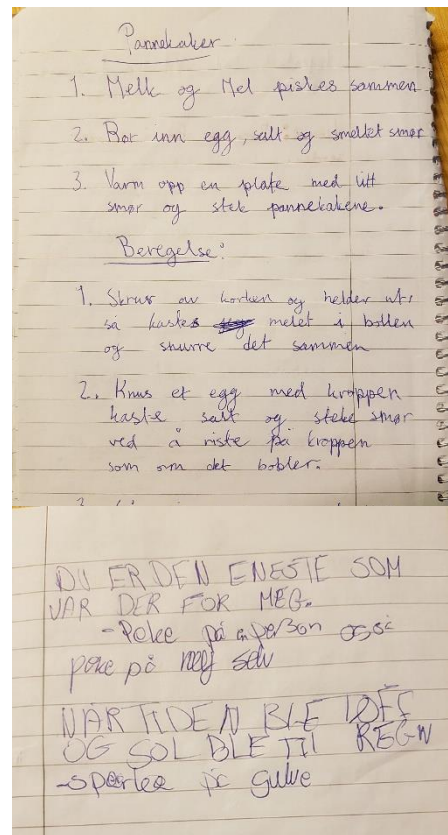 Pannekaker
1. Melk og Mel piskes sammen
2. Rør inn egg, salt og smeltet smør
3. Varm opp en plate med litt
smør og stek pannekakene.
Bevegelse:
1. Skrus av korken og helder ut,
så kastes melet i bollen
og snurre det sammen
2. Knus et egg med kroppen
kaste salt og steke smør
ved å riste på kroppen
som om det bobler.
DU ER DEN ENESTE SOM
VAR DER FOR MEG.
-Peke på en person også
peke på meg selv
NÅR TIDEN BLE
OG SOL BLE TIL REGN
-sparke på gulve